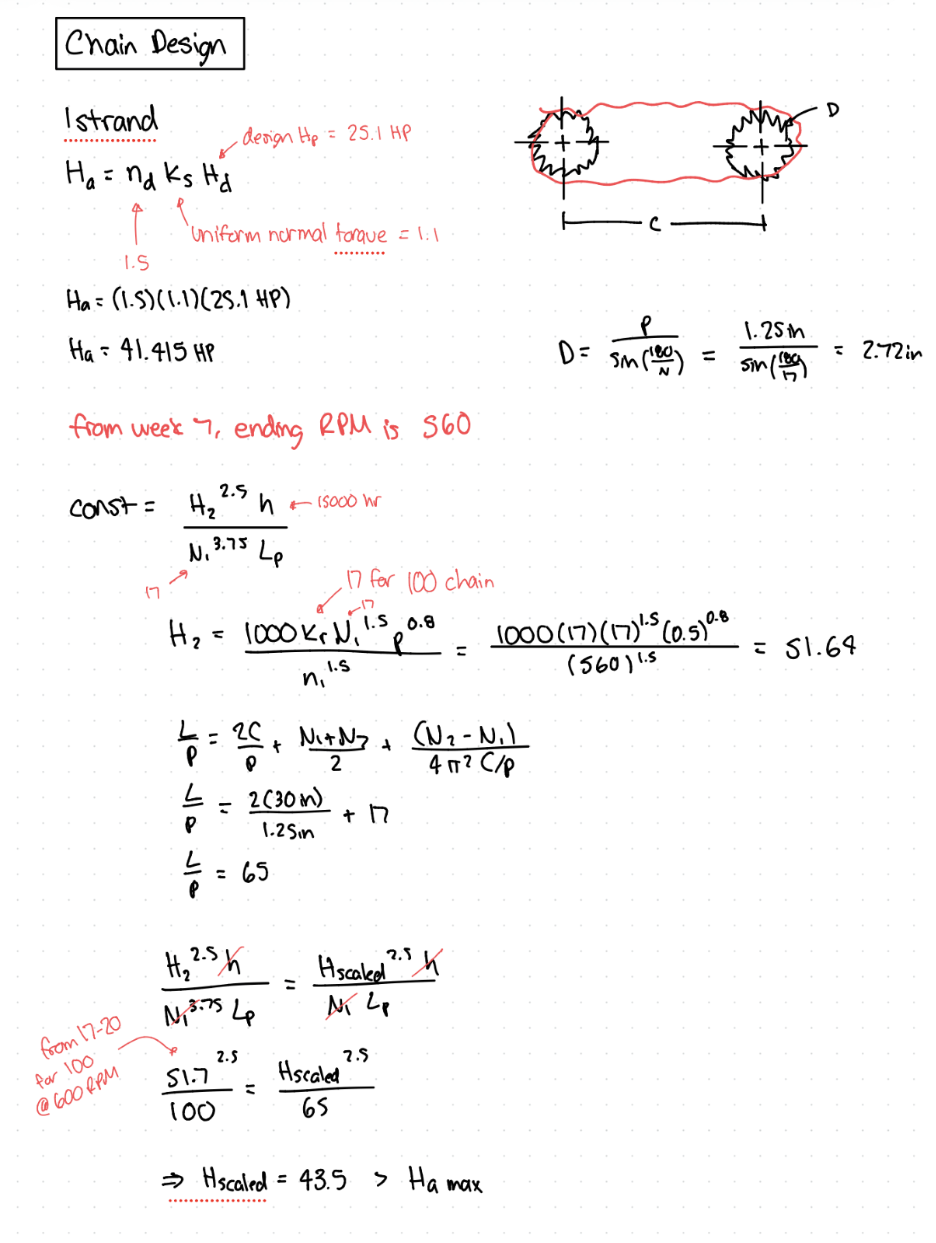 Chain Design
1 strand
design Hp = 25.1 HP
Ha = nd Ks Hd
uniform normal torque = 1.1
1.5
D
C
Ha = (1.5)(1.1)(25.1 HP)
Ha = 41.415 HP
D = P / sin(180/N) = 1.25in / sin(180/17) = 2.72in
from week 7, ending RPM is 560
const = H₂^2.5 h / N₁^3.75 Lp
15000 hr
17
17 for 100 chain
17
H₂ = 1000 Kr N₁^1.5 p^0.8 / n₁^1.5 = 1000(17)(17)^1.5 (0.5)^0.8 / (560)^1.5 = 51.64
L/P = 2C/P + N₁+N₂/2 + (N₂-N₁)/4π² C/P
L/P = 2(30in)/1.25in + 17
L/P = 65
H₂^2.5 h / N₁^3.75 Lp = Hscaled^2.5 h / N₁ Lp
from 17-20
for 100
@ 600 RPM
51.7^2.5 / 100 = Hscaled^2.5 / 65
⇒ Hscaled = 43.5 > Ha max